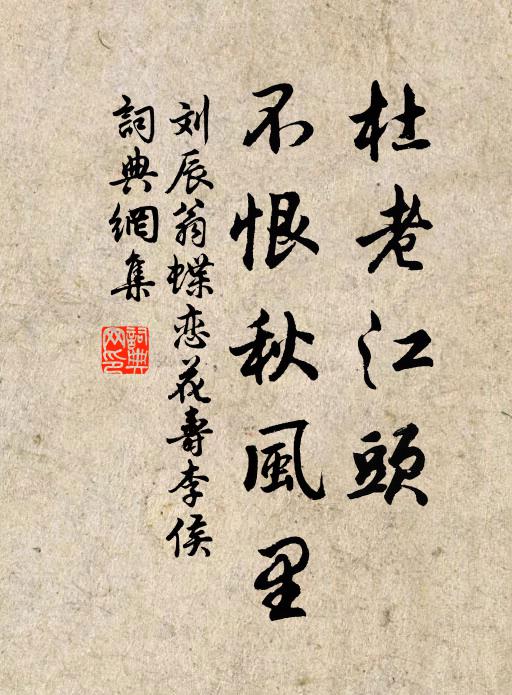 杜老江頭
不恨秋風里
刘辰翁蝶恋花壽李侯
詞典網集
詞典網印